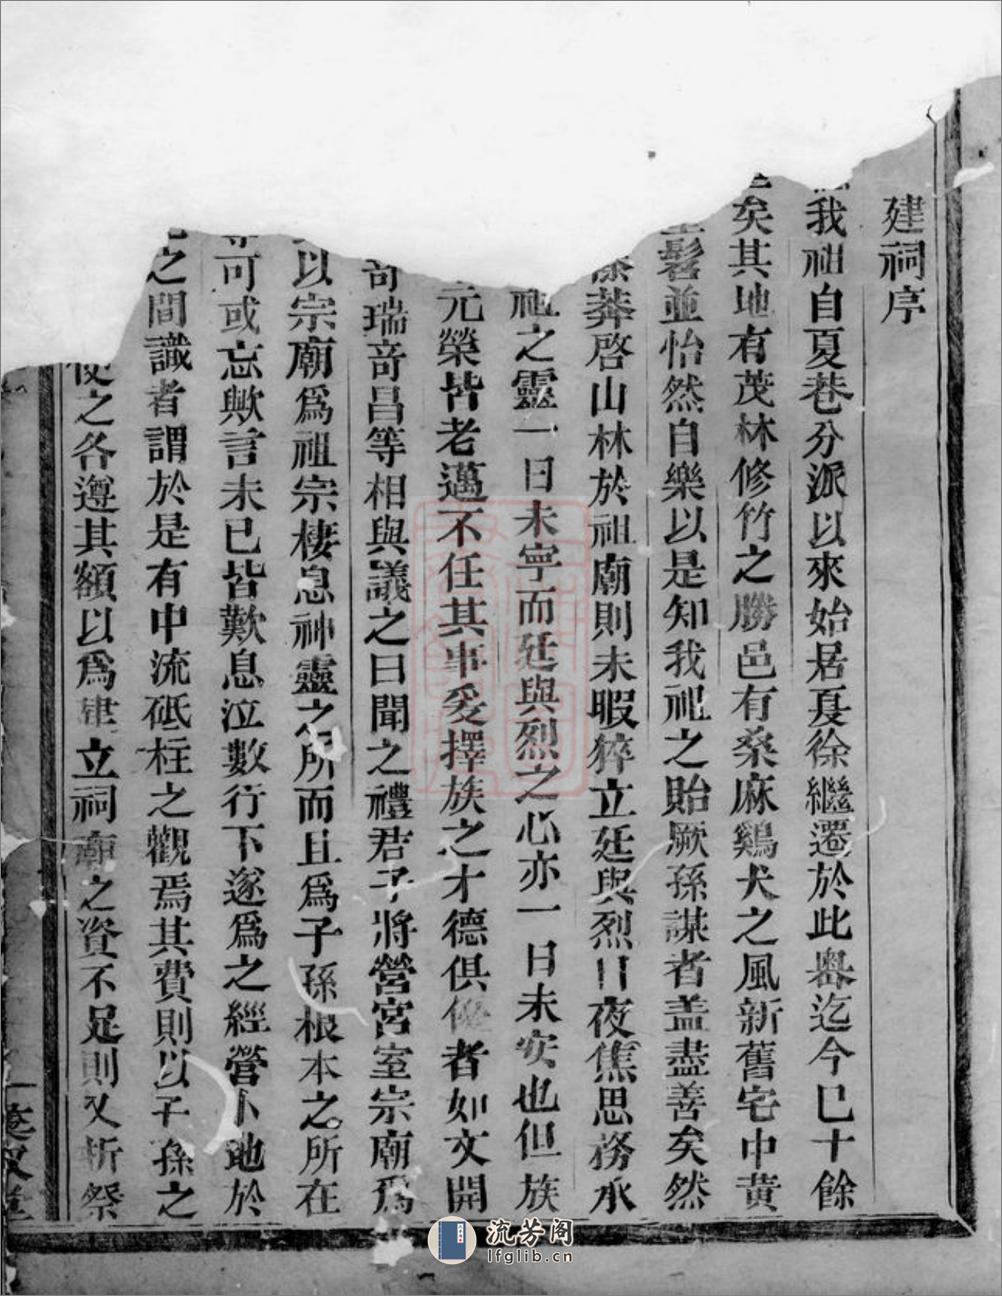 建祠序
我祖自夏巷分派以來始居夏徐繼遷於此粵迄今已十餘
矣其地有茂林修竹之勝邑有桑麻鷄犬之風新舊宅中黄
髫並怡然自樂以是知我祖之貽厥孫謀者盖盡善矣然
莽啓山林於祖廟則未暇猝立廷與烈日夜焦思務承
祖之靈一日未寧而廷與烈之心亦一日未安也但族
元榮皆老邁不任其事爰擇族之才德俱優者如文開
奇瑞奇昌等相與議之曰聞之禮君子將營宮室宗廟爲
以宗廟爲祖宗棲息神靈之所而且爲子孫根本之所在
可或忘歟言未已皆歎息泣數行下遂爲之經營卜地於
之間識者謂於是有中流砥柱之觀焉其費則以子孫之
之各遵其額以爲建立祠廟之資不足則又析祭
敘堂
流芳阁
lfglib.cn